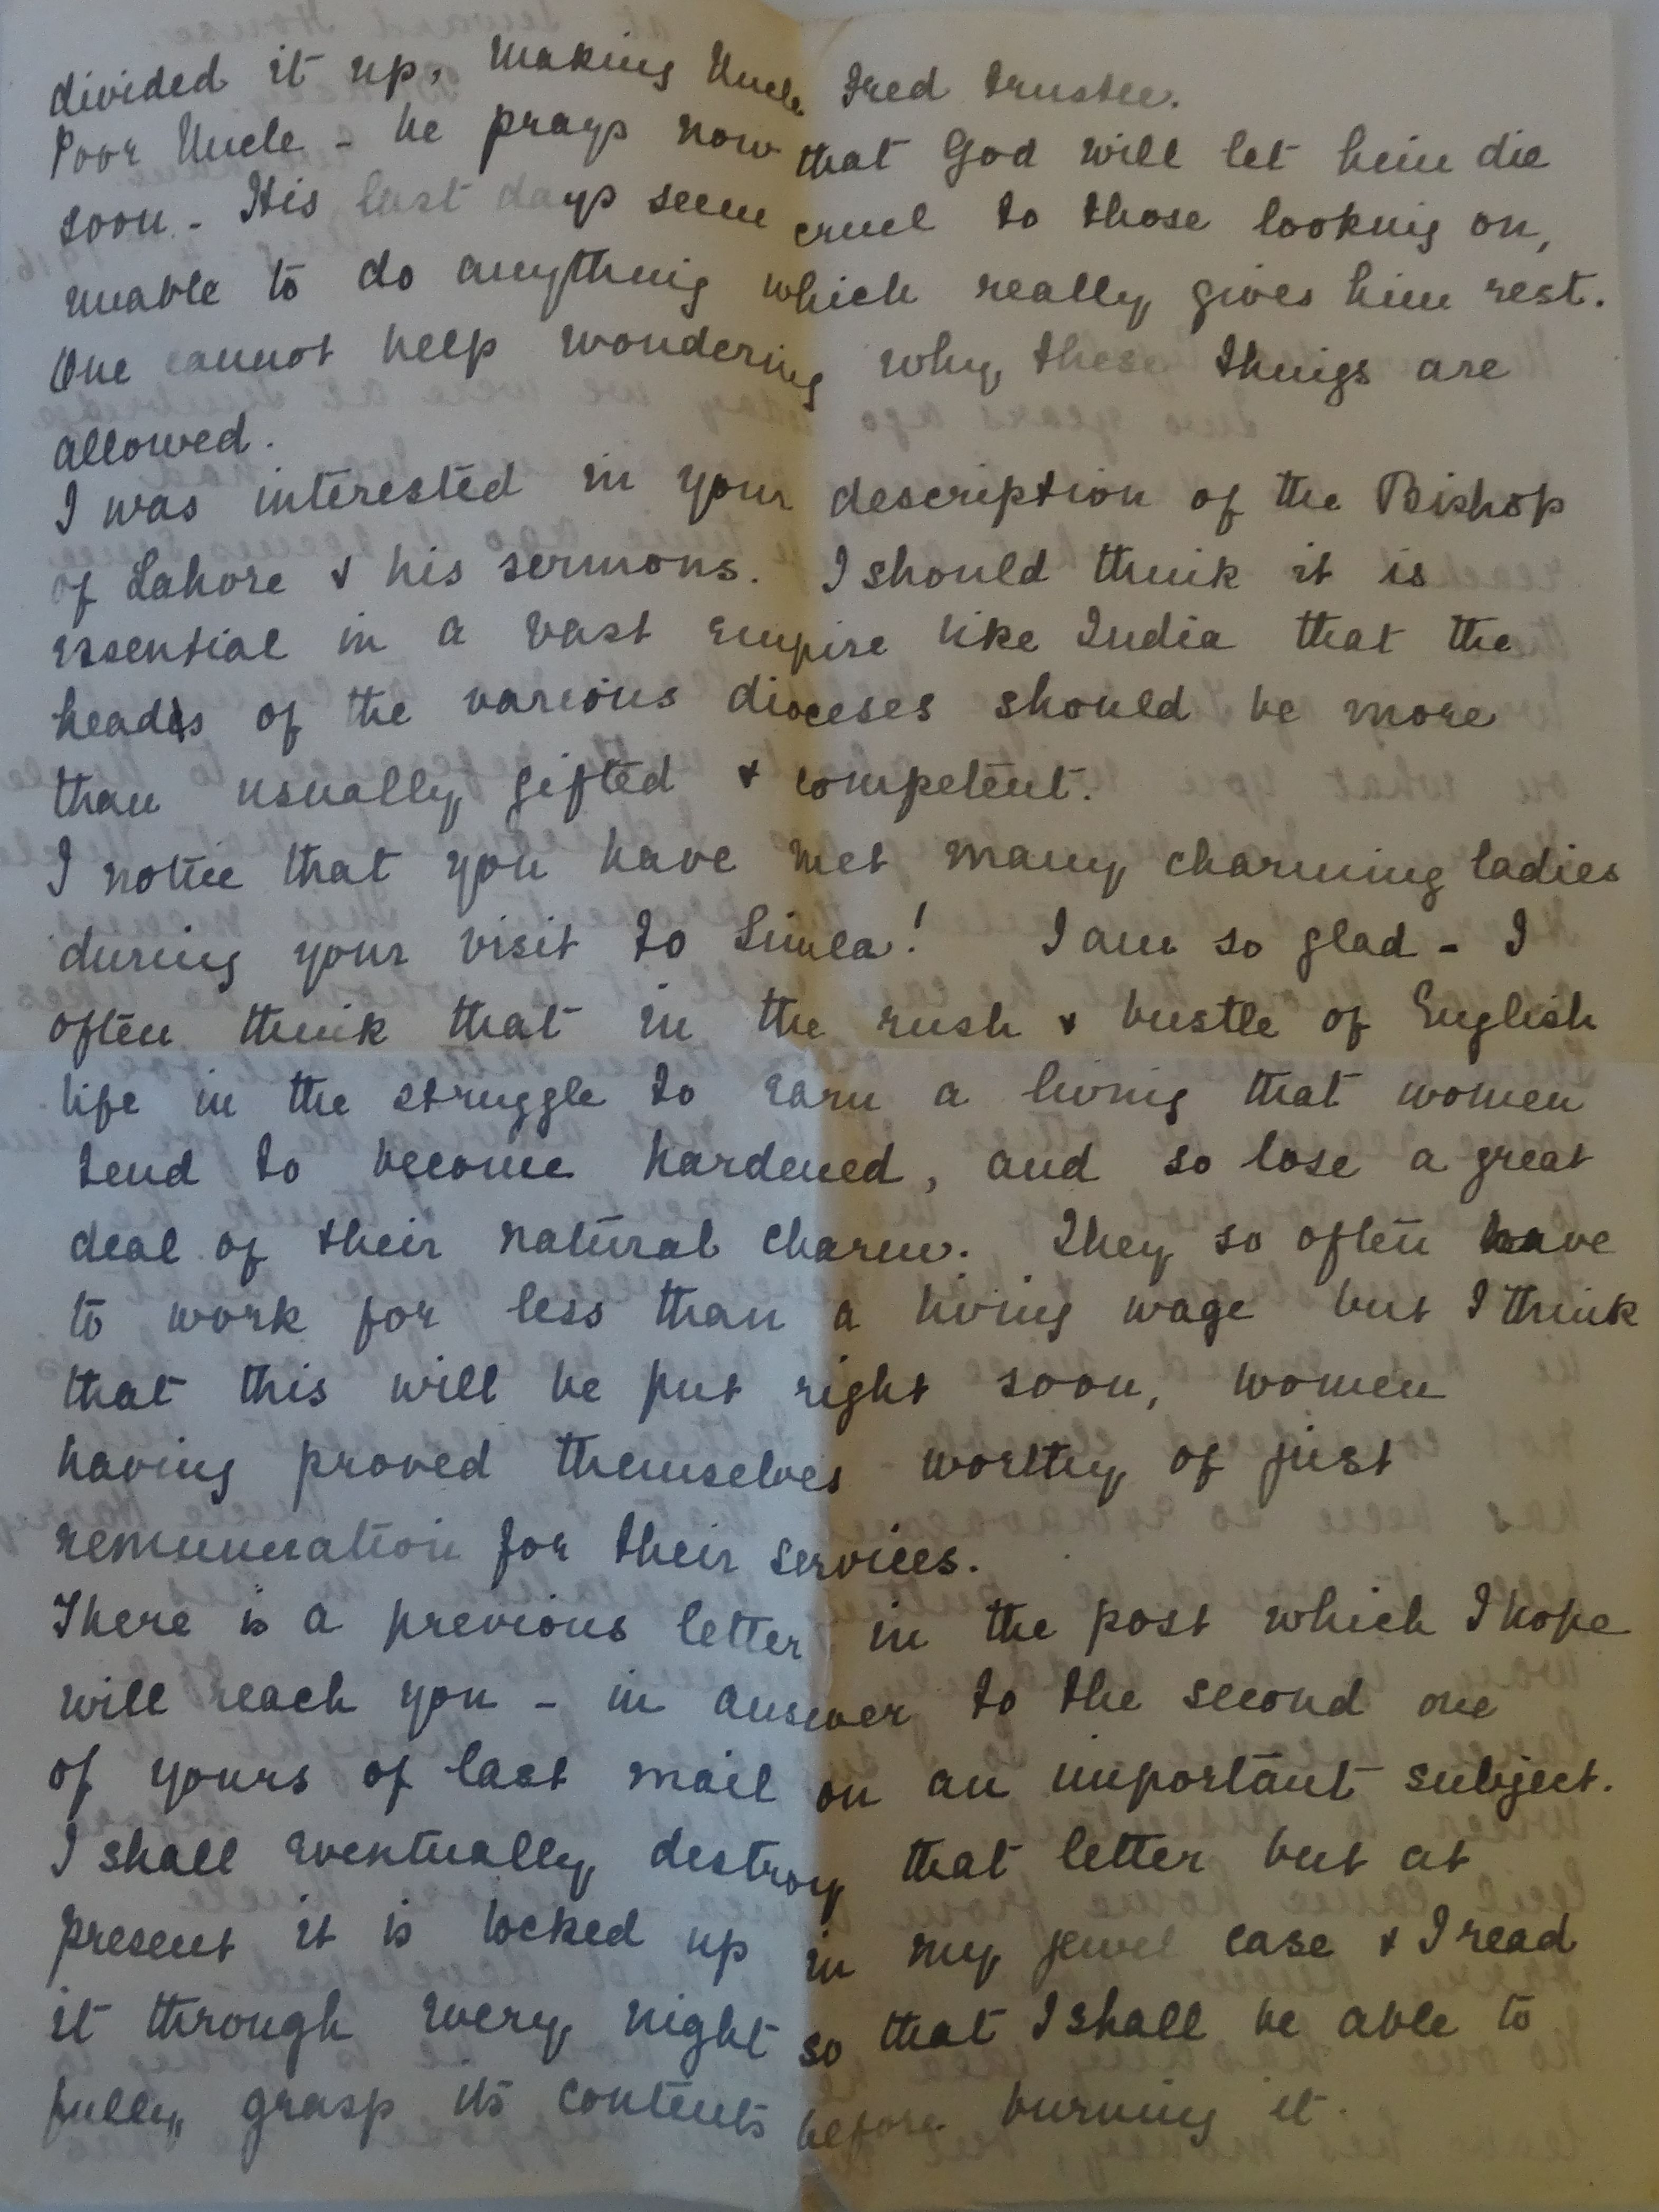 divided it up, making Uncle Fred trustee.
Poor Uncle - he prays now that God will let him die
soon - His last days seem cruel to those looking on,
unable to do anything which really gives him rest.
One cannot help wondering why these things are
allowed.
I was interested in your description of the Bishop
of Lahore & his sermons. I should think it is
essential in a vast empire like India that the
heads of the various dioceses should be more
than usually gifted & competent.
I notice that you have met many charming ladies
during your visit to Simla! I am so glad - I
often think that in the rush & bustle of English
life in the struggle to earn a living that women
tend to become hardened, and so lose a great
deal of their natural charm. They so often have
to work for less than a living wage but I think
that this will be put right soon, women
having proved themselves worthy of just
remuneration for their services.
There is a previous letter in the post which I hope
will reach you - in answer to the second one
of yours of last mail on an important subject.
I shall eventually destroy that letter but at
present it is locked up in my jewel case & I read
it through every night so that I shall be able to
fully grasp its contents before burning it.